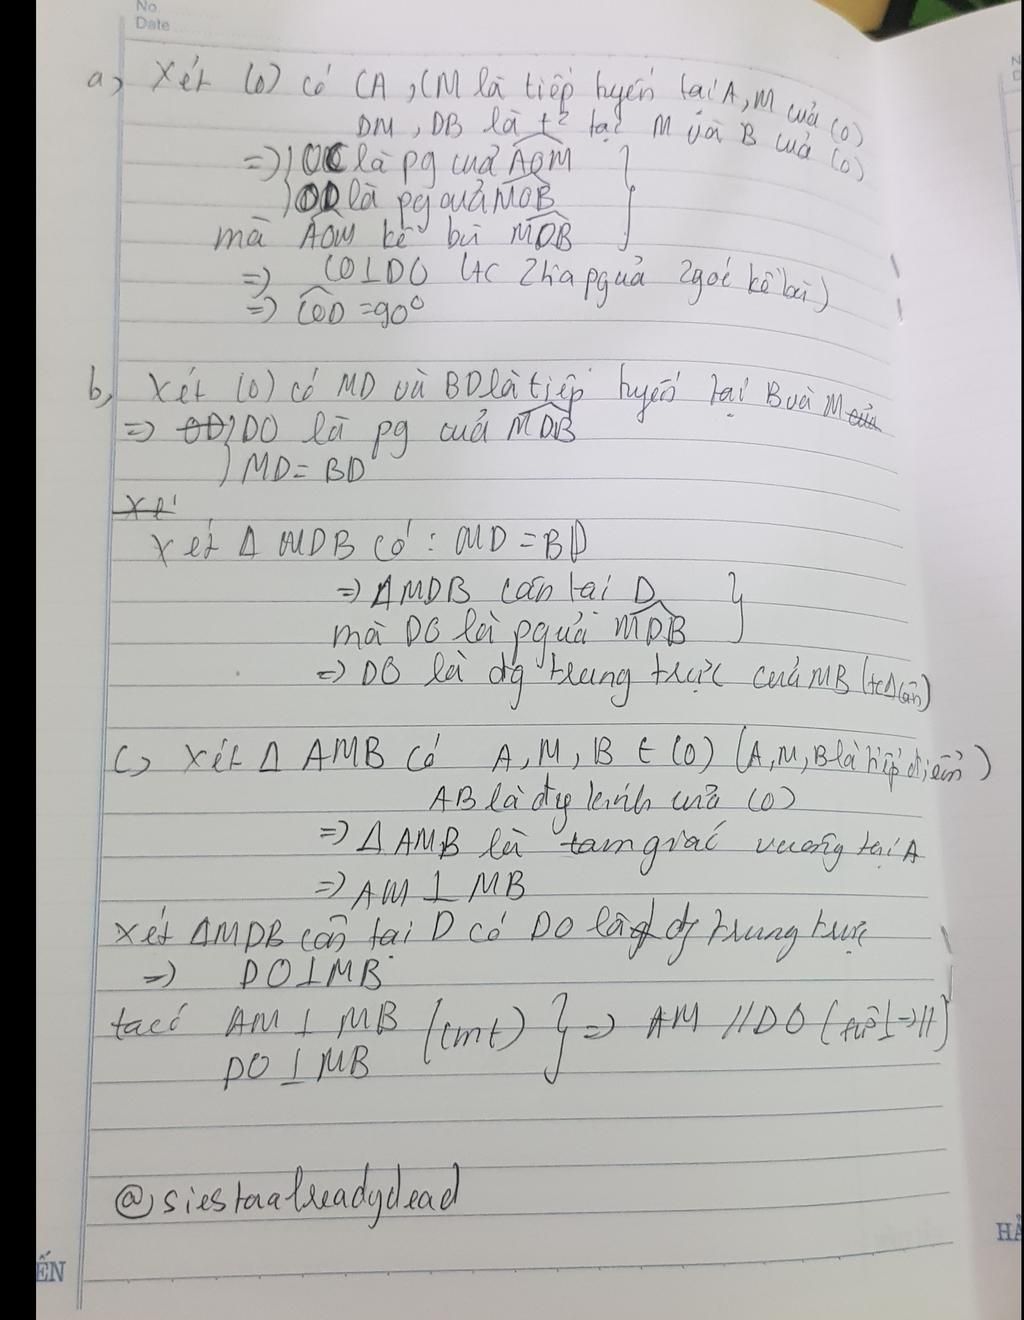 No
Date
a, Xét (O) có CA, CM là tiếp tuyến tại A, M của (O)
DM, DB là t² tại M và B của (O)
=> ) OC là pg của AOM }
) OD là pg của MOB
mà AOM kề bù MOB
=> CO⊥DO (tc 2 tia pg của 2 góc kề bù)
=> COD = 90°
b, Xét (O) có MD và BD là tiếp tuyến tại B và M của
=> OD ) DO là pg của MDB
) MD = BD
Xé
Xét Δ MDB có : MD = BD
=> ΔMDB cân tại D }
mà DO là pg của MDB
=> DO là đg trung trực của MB (tcΔcân)
C, Xét Δ AMB có A, M, B ∈ (O) (A, M, B là tiếp điểm)
AB là đg kính của (O)
=> Δ AMB là tam giác vuông tại A
=> AM ⊥ MB
Xét ΔMDB cân tại D có DO là đg trung trực
=> DO⊥MB
ta có AM ⊥ MB (cmt) } => AM // DO (từ ⊥->//)
DO ⊥ MB
@siestaalreadydead
ẾN
HẢ